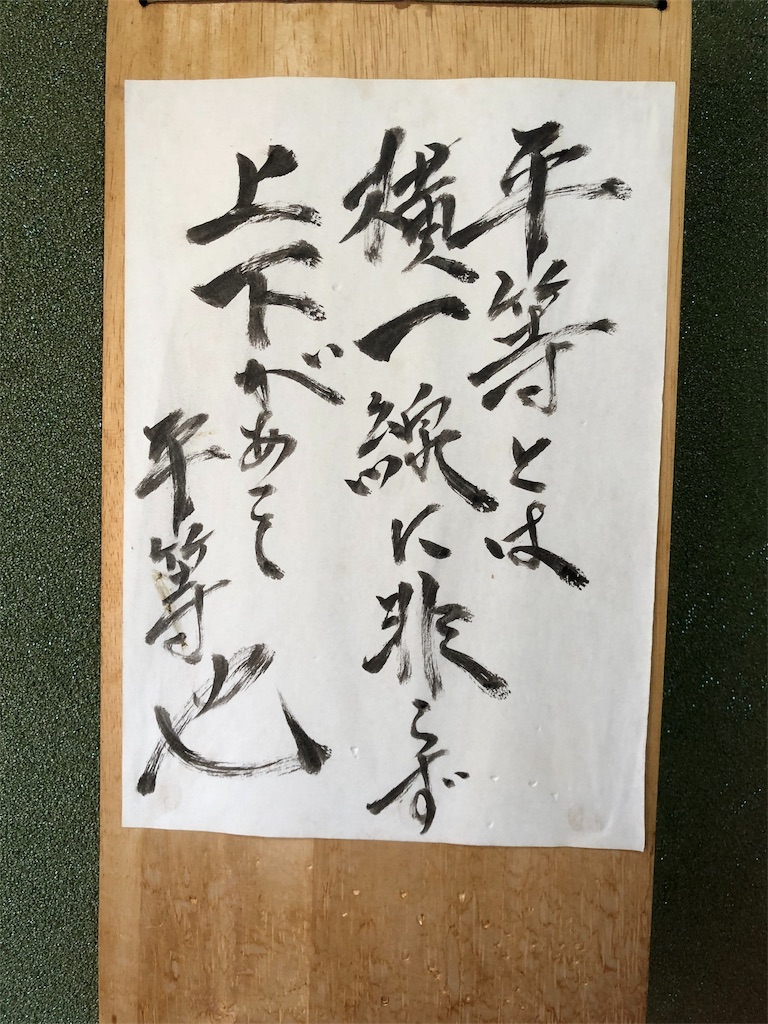 平等とは
横一線に非らず
上下があこそ
平等也